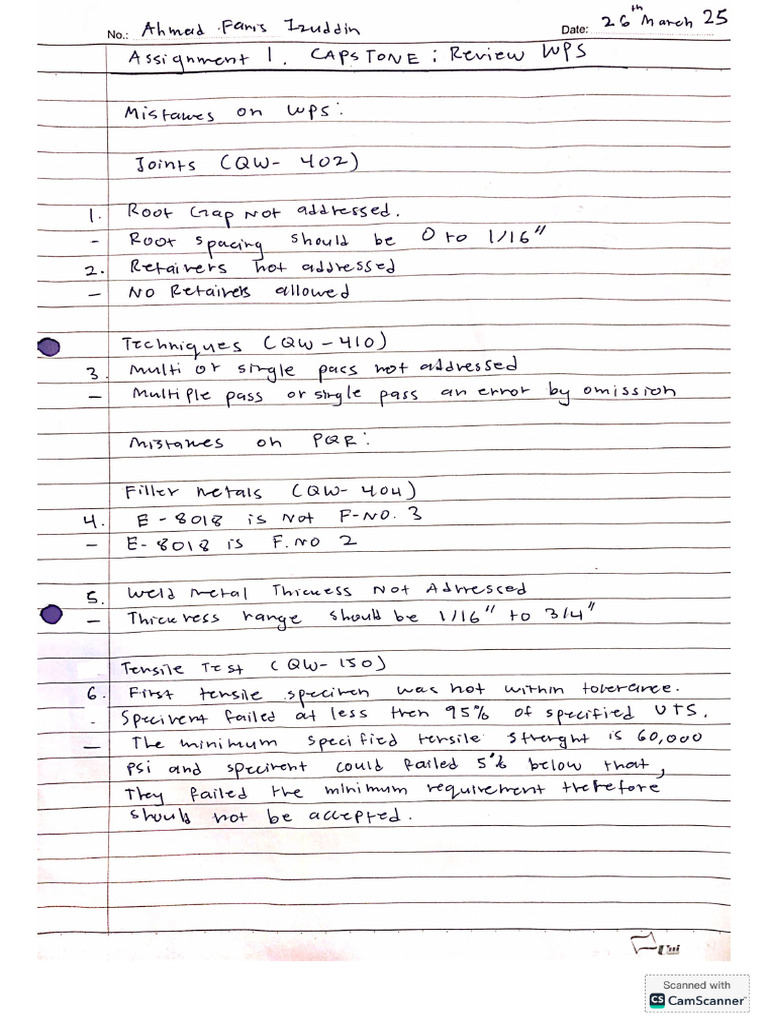 No.: Ahmad Faris Izuddin Date: 26th March 25
Assignment 1. CAPSTONE : Review WPS
Mistakes on WPS:
Joints (QW- 402)
1. Root Gap Not addressed.
- Root spacing should be 0 to 1/16"
2. Retainers not addressed
- No Retainers allowed
Techniques (QW-410)
3. Multi or single pass not addressed
- Multiple pass or single pass an error by omission
Mistakes on PQR:
Filler metals (QW-404)
4. E-8018 is Not F-NO. 3
- E-8018 is F.NO 2
5. Weld Metal Thickess Not Adrressed
- Thickness range should be 1/16" to 3/4"
Tensile Test (QW-150)
6. First tensile specimen was not within tolerance.
- Speciment failed at less then 95% of specified UTS.
- The minimum specified tensile strenght is 60,000
psi and speciment could failed 5% below that,
They failed the minimum requirement therefore
should not be accepted.
Scanned with
CS CamScanner